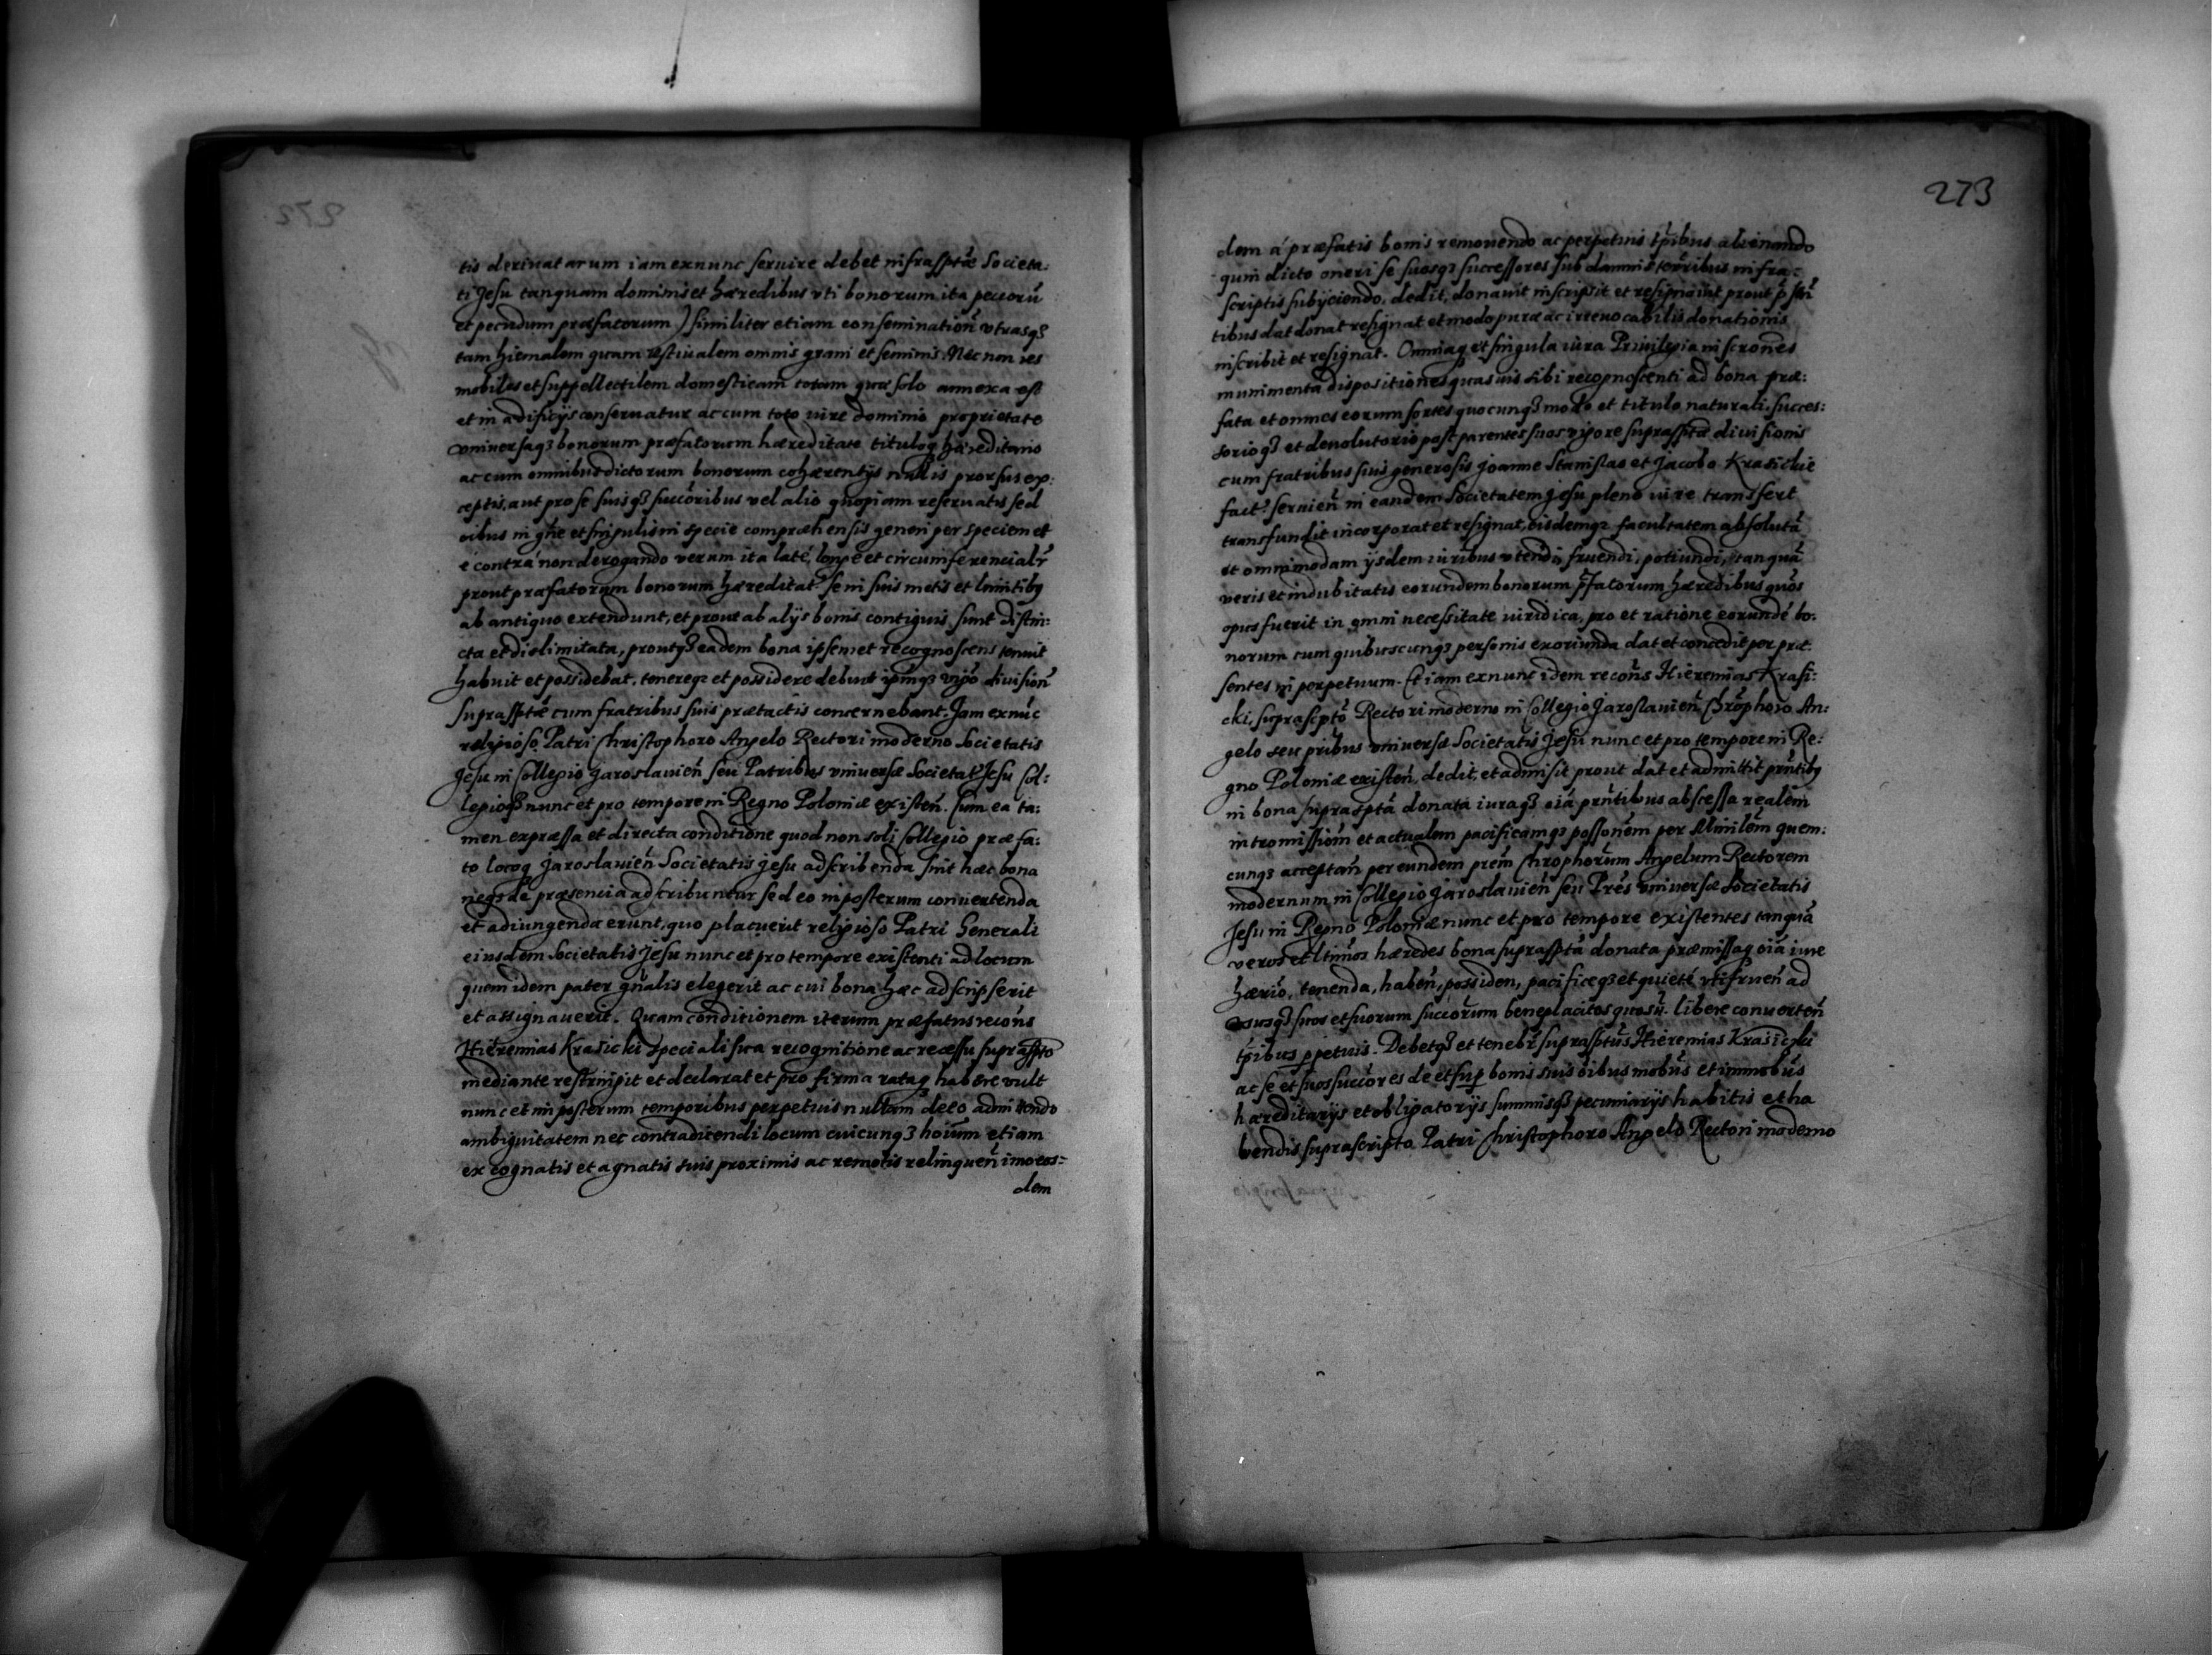 tis deriuatarum iam exnunc seruire debet infrascriptæ Societa:
ti Jesu tanquam dominis et hæredibus vti bonorum ita pecorũ
et pecudum præfatorum) similiter etiam conseminationẽ vtrasq3
tam hiemalem quam æstiualem omnis grani et seminis. Nec non res
mobiles et suppellectilem domesticam totam quæ solo annexa est
et in ædificijs conseruatur ac cum toto iure dominio proprietate
vniuersaq3 bonorum præfatorum hæreditate tituloq hæreditario
ac cum omnibus dictorum bonorum cohærentijs nullis prorsus ex:
ceptis, aut pro se suisq3 succoribus vel alio quopiam reseruatis sed
oibus in gñe et singulis in specie compræhensis generi per speciem et
è contrá non derogando verum ita laté, longe et circumferencialr
prout præfatorum bonorum hæreditat se in suis metis et limitibq
ab antiquo extendunt, et prout ab alijs bonis contiguis sunt distin:
cta et dislimitata, proutq3 eadem bona ipsemet recognoscens tenuit
habuit et possidebat, tenereq3 et possidere debuit ipmq3 vigo diuision
suprasptæ cum fratribus suis prætactis concernebant. Jam exnũc
religioso Patri Christophoro Angelo Rectori moderno Societatis
Jesu in Collegio Jaroslauien seu Patribus vniuersæ Societat Jesu Col:
legioq3 nunc et pro tempore in Regno Poloniæ existen. Cum ea ta:
men expræssa et directa conditione quod non soli Collegio præfa:
to locoq Jaroslauien Societatis Jesu adscribenda sint hæc bona
neq3 de præsencia adscribuntur sed eo inposterum conuertenda
et adiungenda erunt, quo placuerit religioso Patri Generali
eiusdem Societatis Jesu nunc et pro tempore existenti ad locum
quem idem pater gñalis elegerit ac cui bona hæc adscripserit
et assignauerit. Quam conditionem iterum præfatus recons
Hieremias Krasicki speciali sua recognitione ac recessu suprassto
mediante restringit et declarat et pro firma rataq habere vult
nunc et in posterum temporibus perpetuis nullam de eo admittendo
ambiguitatem nec contradicendi locum cuicunq3 hoium etiam
ex cognatis et agnatis suis proximis ac remotis relinquen imo eos=
dem
273
dem á præfatis bonis remouendo ac perpetuis tpibus alienando
quin dicto oneri se suosq3 successores sub damnis terribus infra:
scriptis subijciendo, dedit, donauit inscripsit et resignauit prout p̃ sñ
tibus dat donat resignat et modo puræ ac irreuocabilis donationis
inscribit et resignat. Omniaq et singula iura Priuilegia inscrones
munimenta dispositiones quasuis sibi recognoscenti ad bona præ:
fata et omnes eorum sortes quocunq3 modo et titulo naturali, succes:
sorioq3 et deuolutorio post parentes suos vigore suprasptæ diuisionis
cum fratribus suis generosis Joanne Stanislao et Jacobo Krasickie
fact seruien in eandem Societatem Jesu pleno iure transfert
transfundit incorporat et resignat, eisdemq3 facultatem absolutã
et omnimodam ijsdem iuribus vtendi, fruendi, potiundi, tanquã
veris et indubitatis eorundem bonorum pfatorum hæredibus quos
opus fuerit in omni necessitate iuridica, pro et ratione eorundẽ bo:
norum cum quibuscunq3 personis exoriunda dat et concedit per præ:
sentes in perpetuum. Et iam exnunc idem recons Hieremias Krasi:
cki, suprascpto Rectori moderno in Collegio Jaroslauien Chrophoro An:
gelo seu pribus vniuersæ Societatis Jesu nunc et pro tempore in Re:
gno Poloniæ existen, dedit, et admisit prout dat et admittit prntibq
in bona suprasptã donata iuraq3 oiã prntibus abscessa realem
intromissiom et actualem pacificamq3 possonem per Minilem quem:
cunq3 acceptam per eundem prem Chrophorum Angelum Rectorem
modernum in Collegio Jaroslauien seu Pres vniuersæ Societatis
Jesu in Regno Poloniæ nunc et pro tempore existentes tanquã
veros et ltimos hæredes bona suprasptã donata præmissaq oiã iure
hærio, tenenda, haben, possiden, pacificeq3 et quietè vtifruen ad
vsusq3 suos et suorum succorum beneplacitos quosũ. libere conuerten
tpibus perpetuis. Debetq3 et tenebr suprasptus Hieremias Krasicki
ac se et suos succores de et sup bonis suis oibus mobus et immobus
hæreditarijs et obligatorijs summisq3 pecuniarijs habitis et ha
bendis suprascripto Patri Christophoro Angelo Rectori moderno